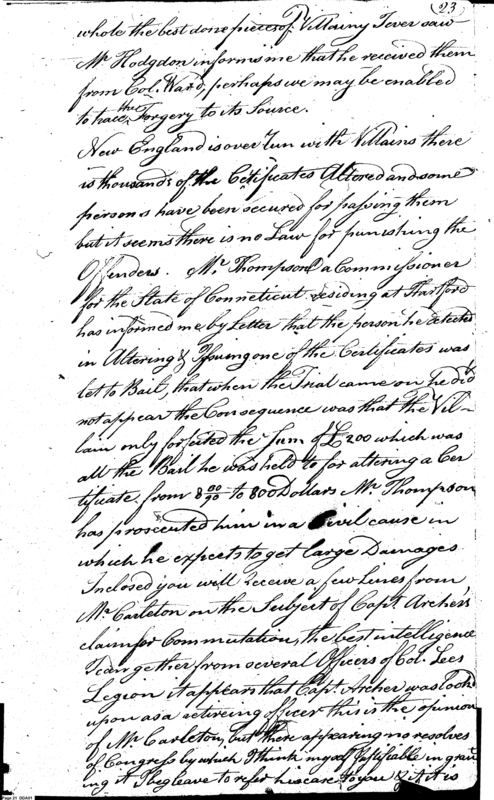 (23)
whole the best done pieces of Villainy I ever saw
Mr Hodgdon informs me that he received them
from Col. Ward, perhaps we may be enabled
to trace the Forgery to its Source.
New England is over run with Villains there
is thousands of the Certificates Altered and some
persons have been secured for passing them
but it seems there is no Law for punishing the
Offenders. Mr. Thompson a Commissioner
for the State of Connecticut residing at Hartford
has informed me by Letter that the person he detected
in Altering & Issuing one of the Certificates was
let to Bail, that when the Trial came on he did
not appear the Consequence was that the Vil-
lain only forfeited the Sum of £200 which was
all the Bail he was held to for altering a Cer
tificate from 8 00/90 to 800 Dollars Mr. Thompson
has prosecuted him in a Civil cause in
which he expects to get large Damages
Inclosed you will receive a few Lines from
Mr Carleton on the Subject of Capt Archer's
claim for Commutation, the best intelligence
I can gether from several Officers of Col. Lees
Legion it appears that Capt. Archer was looked
upon as a retireing officer this is the opinion
of Mr. Carleton, but there appearing no resolves
of Congress by which I think myself justifiable in grant
ing it I beg leave to refer his case to you & if it is
Page 21 DDA01